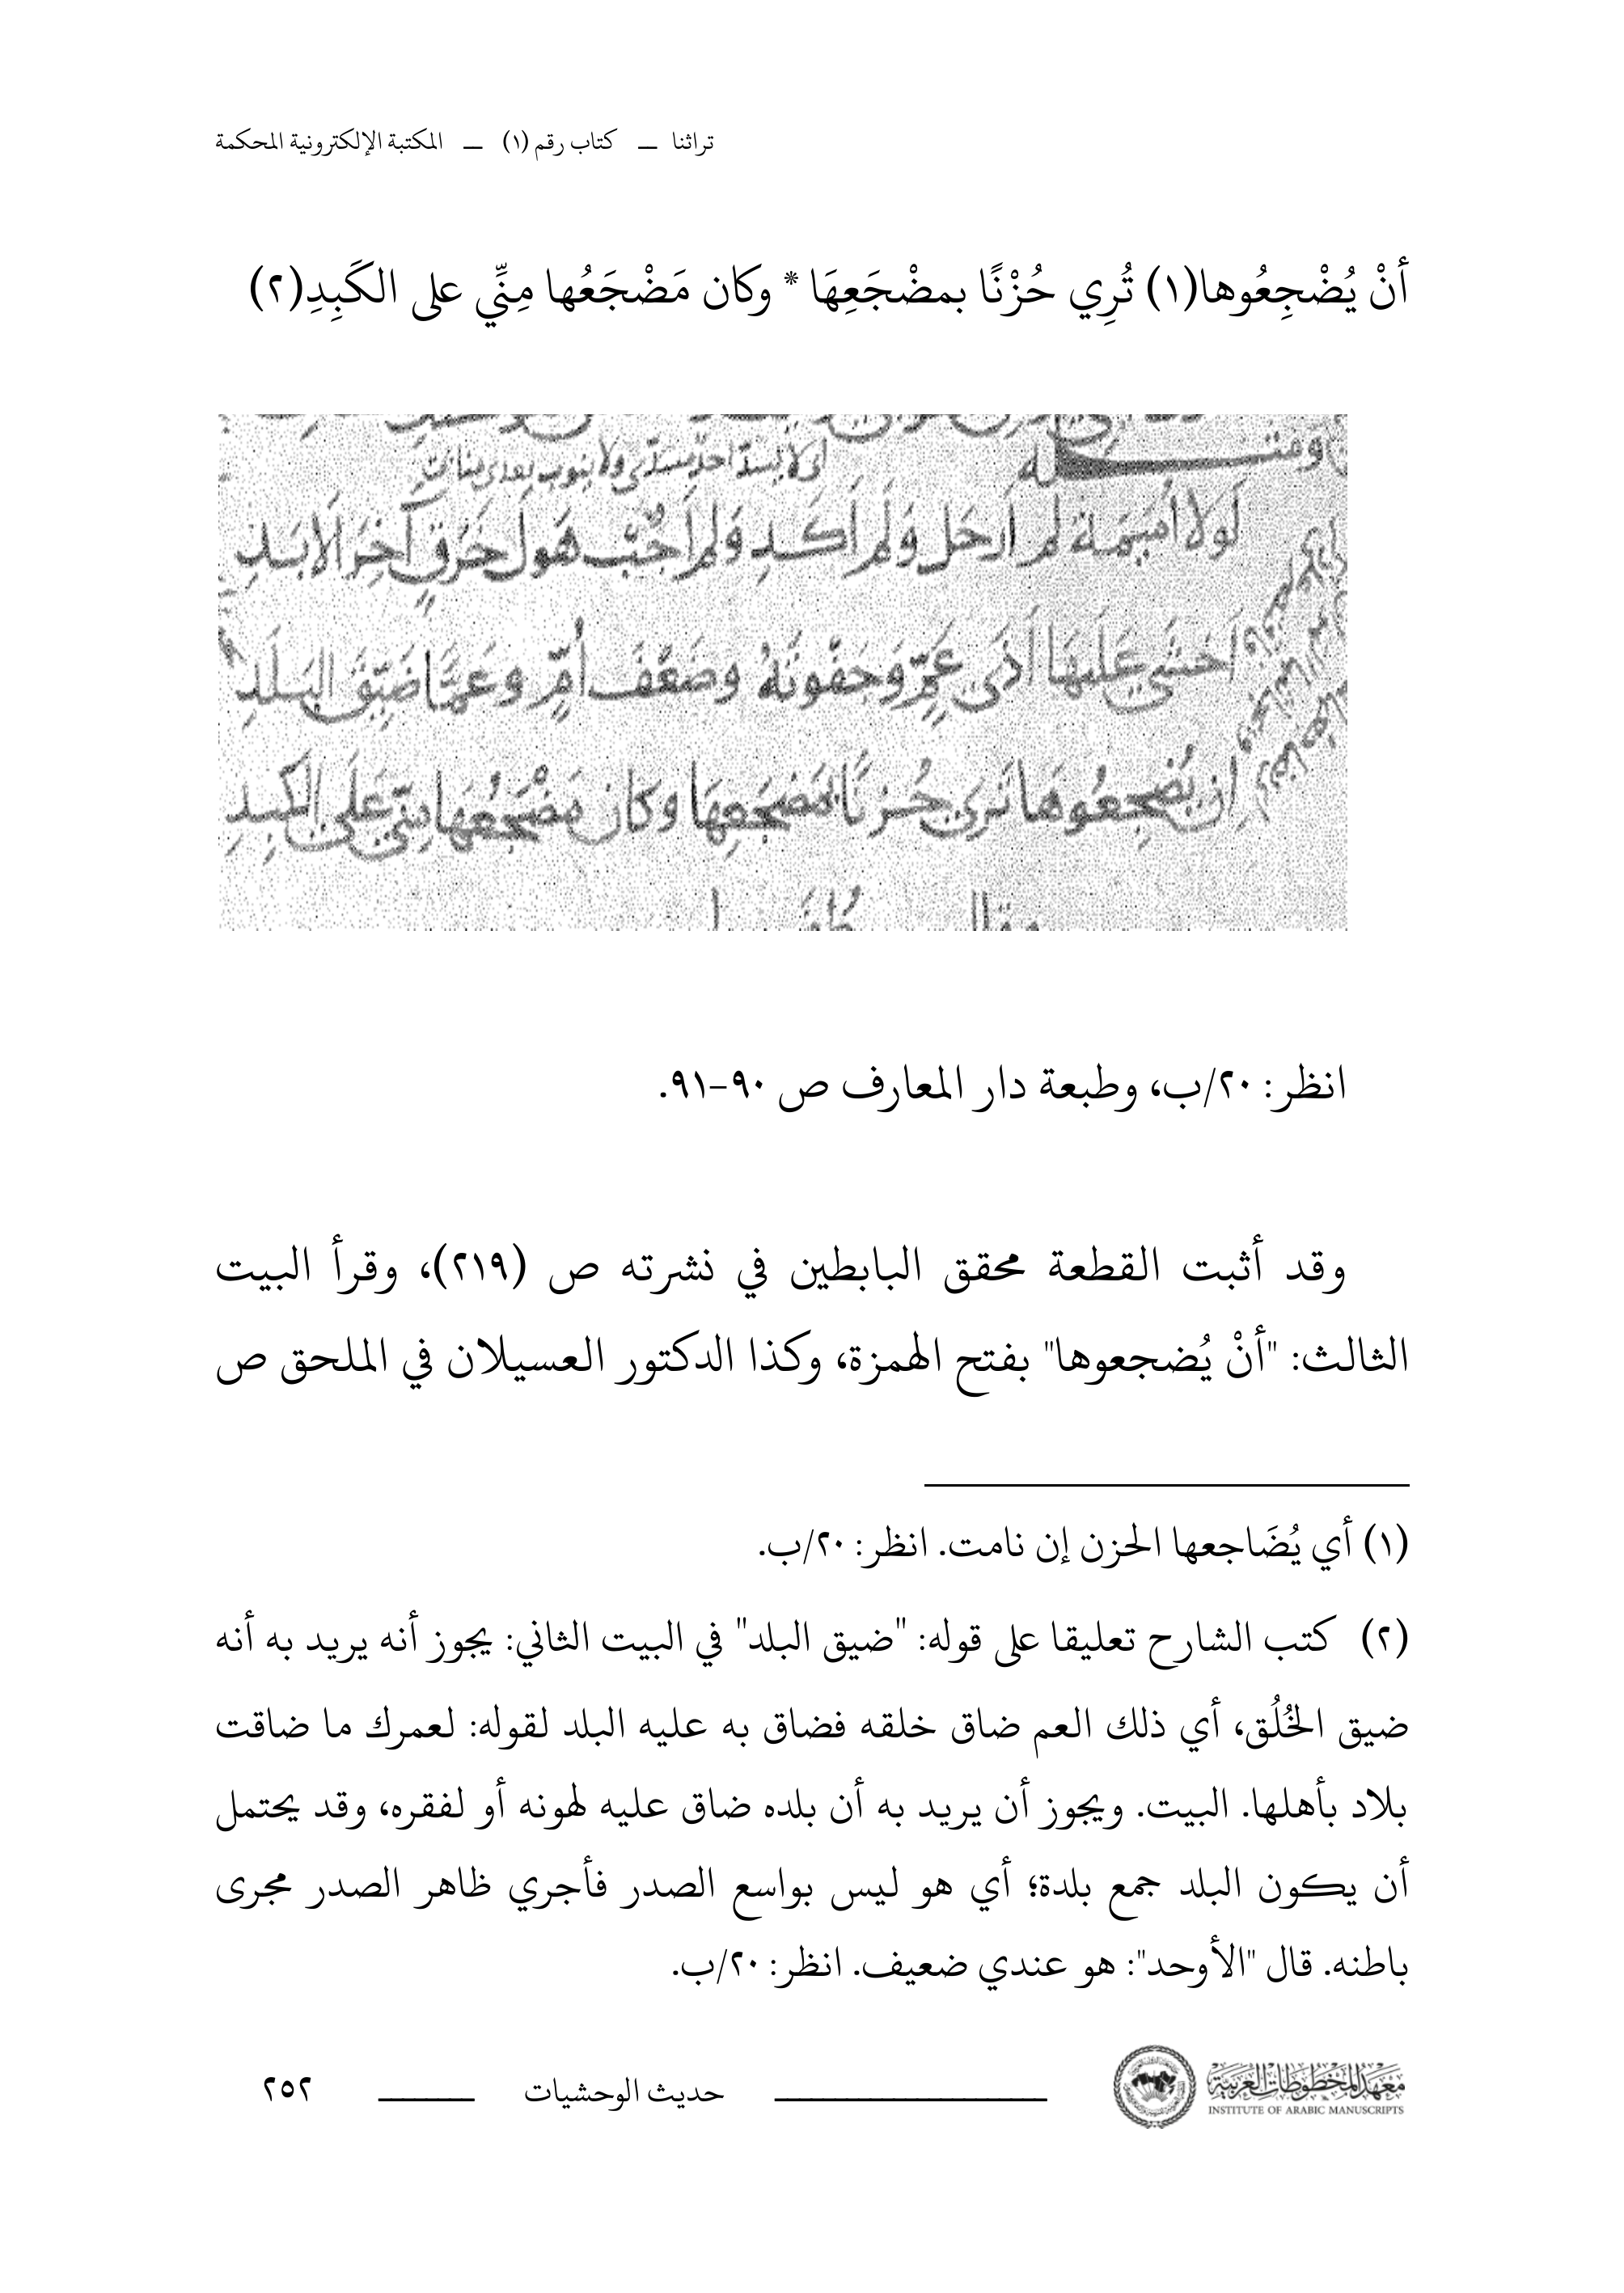 تراثنا — كتاب رقم (١) — المكتبة الإلكترونية المحكمة
أنْ يُضْجِعُوها(١) تُرِي حُزْنًا بمضْجَعِهَا * وكان مَضْجَعُها مِنِّي على الكَبِدِ(٢)
ومثله
لَولا أُمَيمَة لم أرحَل وَلَم أكَدِ وَلم هَول خَرْقٍ آخِرَ الأبَدِ
أخشَى عَلَيهَا أذَى عَمٍّ وَجَفْوَتَهُ وضَعْفَ أُمٍّ وعَمًّا ضَيِّقَ البَلَدِ
إن يُضجِعُوهَا تَرى حُزنًا بمَضجَعِهَا وكان مَضْجَعُهَا مِنّي عَلَى الكَبِدِ
وقال
انظر: ٢٠/ب، وطبعة دار المعارف ص ٩٠-٩١.
وقد أثبت القطعة محقق البابطين في نشرته ص (٢١٩)، وقرأ البيت
الثالث: "أنْ يُضجعوها" بفتح الهمزة، وكذا الدكتور العسيلان في الملحق ص
(١) أي يُضَاجعها الحزن إن نامت. انظر: ٢٠/ب.
(٢) كتب الشارح تعليقا على قوله: "ضيق البلد" في البيت الثاني: يجوز أنه يريد به أنه
ضيق الخُلُق، أي ذلك العم ضاق خلقه فضاق به عليه البلد لقوله: لعمرك ما ضاقت
بلاد بأهلها. البيت. ويجوز أن يريد به أن بلده ضاق عليه لهونه أو لفقره، وقد يحتمل
أن يكون البلد جمع بلدة؛ أي هو ليس بواسع الصدر فأجري ظاهر الصدر مجرى
باطنه. قال "الأوحد": هو عندي ضعيف. انظر: ٢٠/ب.
معهد المخطوطات العربية
INSTITUTE OF ARABIC MANUSCRIPTS
حديث الوحشيات
٢٥٢